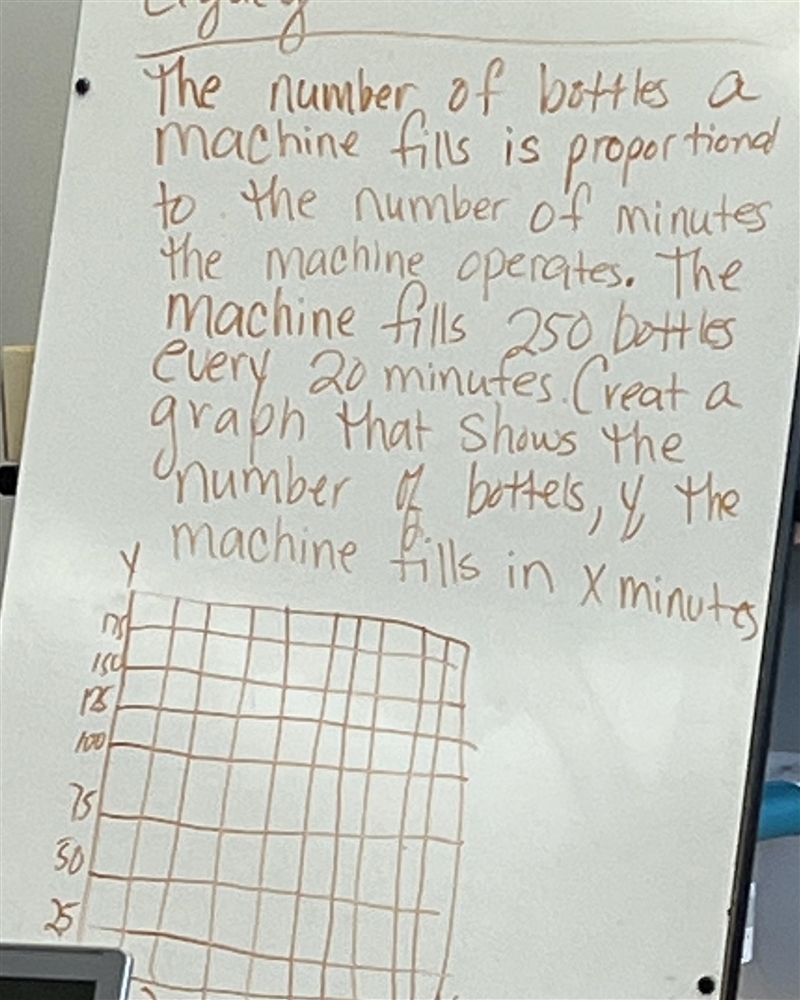 The number of bottles a
machine fills is proportional
to the number of minutes
the machine operates. The
machine fills 250 bottles
every 20 minutes. Creat a
graph that shows the
number of bottels, y, the
machine fills in x minutes
y
175
150
125
100
75
50
25